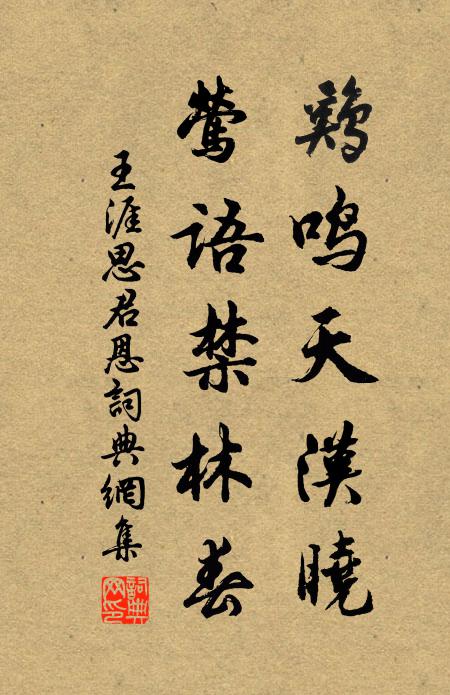 鷄鳴天漢曉
鶯語禁林春
王涯思君恩詞典網集
詞典网印